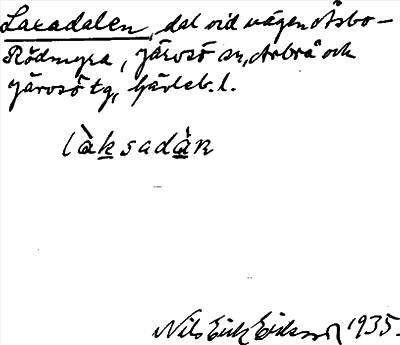 Laxadalen, dal vid vägen Åsbo-
Rödmyra, Järvsö sn, Arbrå och
Järvsö tg, Gävleb. l.
làksadàn
Nils Erik Eriksson 1935.